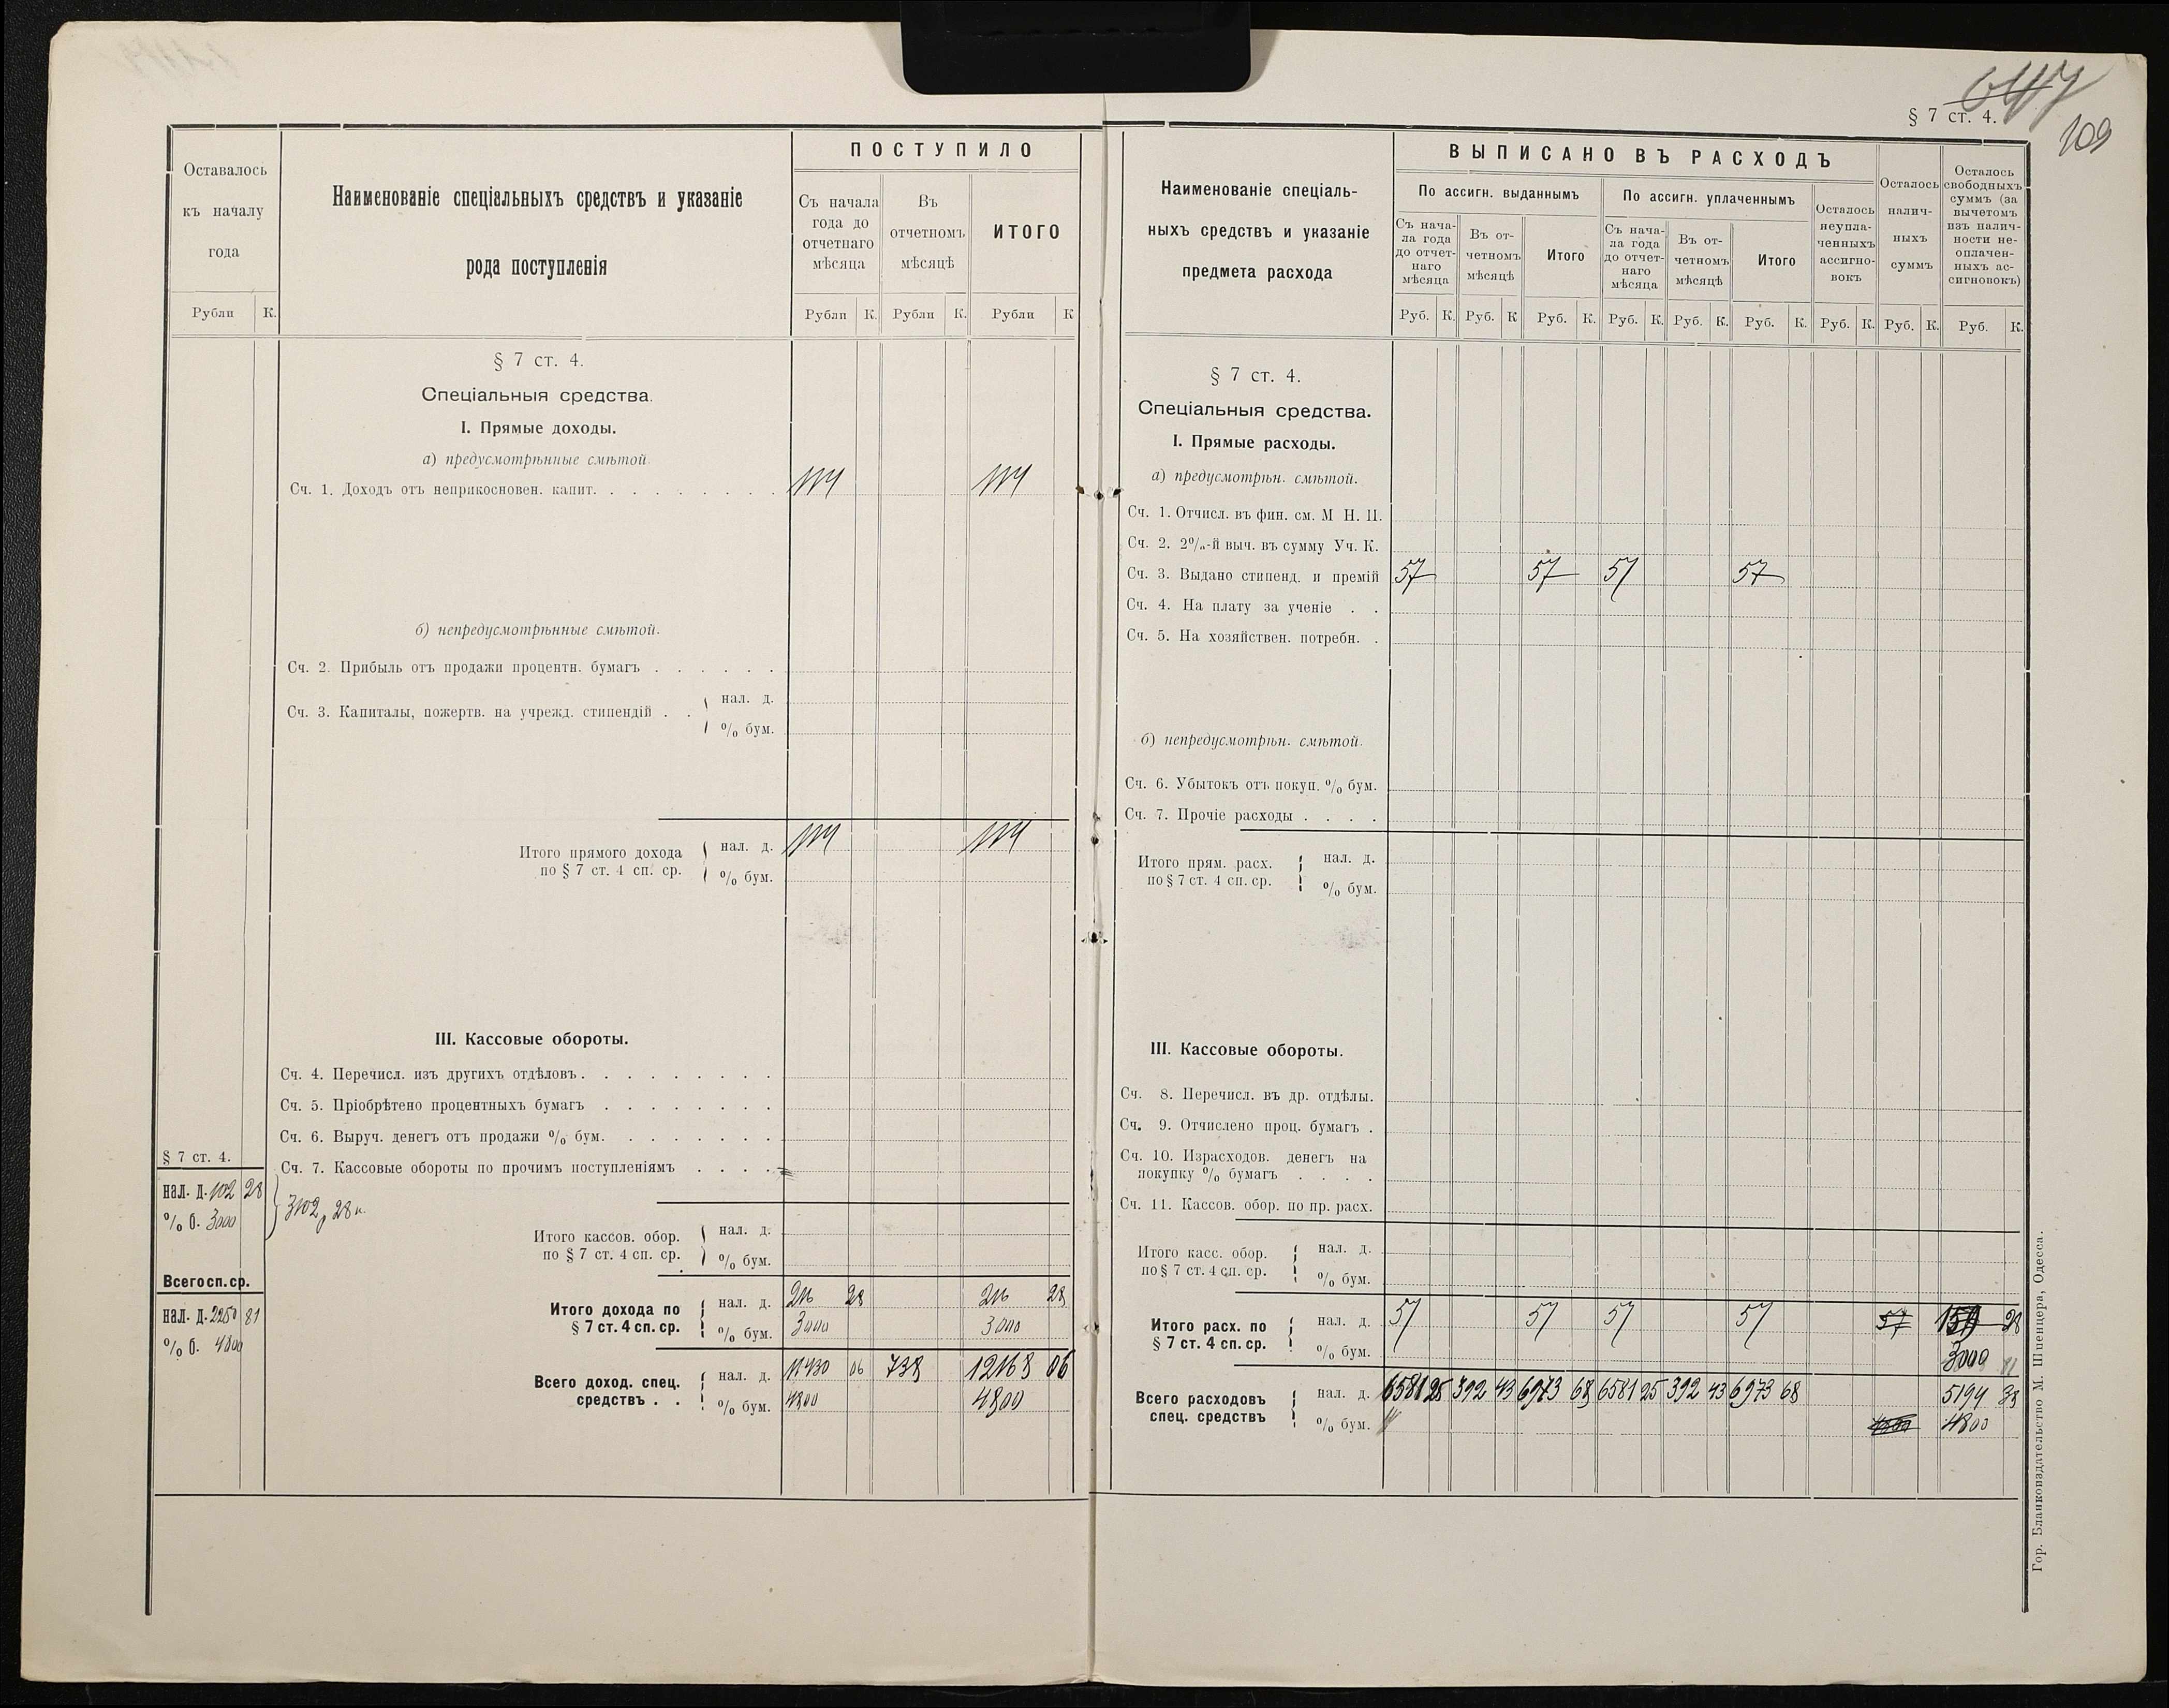 § 7 ст. 4.
109
Оставалось
къ началу
года
Рубли К.
Наименованіе спеціальныхъ средствъ и указаніе
рода поступленія
ПОСТУПИЛО
Съ начала
года до
отчетнаго
мѣсяца
Рубли К.
Въ
отчетномъ
мѣсяцѣ
Рубли К.
ИТОГО
Рубли К
§ 7 ст. 4.
Спеціальныя средства.
I. Прямые доходы.
а) предусмотрѣнные смѣтой.
Сч. 1. Доходъ отъ неприкосновен. капит. 114 114
б) непредусмотрѣнные смѣтой.
Сч. 2. Прибыль отъ продажи процентн. бумагъ
Сч. 3. Капиталы, пожертв. на учрежд. стипендій
нал. д.
% бум.
Итого прямого дохода
по § 7 ст. 4 сп. ср.
нал. д. 114 114
% бум.
III. Кассовые обороты.
Сч. 4. Перечисл. изъ другихъ отдѣловъ
Сч. 5. Пріобрѣтено процентныхъ бумагъ
Сч. 6. Выруч. денегъ отъ продажи % бум.
Сч. 7. Кассовые обороты по прочимъ поступленіямъ
§ 7 ст. 4.
нал. д. 102 28
% б. 3000
3102 р 28 к.
Итого кассов. обор.
по § 7 ст. 4 сп. ср.
нал. д.
% бум.
Всего сп. ср.
нал. д. 2250 81
% б. 4800
Итого дохода по
§ 7 ст. 4 сп. ср.
нал. д. 216 28 216 28
% бум. 3000 3000
Всего доход. спец.
средствъ
нал. д. 11430 06 738 12168 06
% бум. 4800 4800
Наименованіе спеціаль-
ныхъ средствъ и указаніе
предмета расхода
ВЫПИСАНО ВЪ РАСХОДЪ
По ассигн. выданнымъ
Съ нача-
ла года
до отчет-
наго
мѣсяца
Руб. К.
Въ от-
четномъ
мѣсяцѣ
Руб. К
Итого
Руб. К.
По ассигн. уплаченнымъ
Съ нача-
ла года
до отчет-
наго
мѣсяца
Руб. К.
Въ от-
четномъ
мѣсяцѣ
Руб. К.
Итого
Руб. К.
Осталось
неупла-
ченныхъ
ассигно-
вокъ
Руб. К.
Осталось
налич-
ныхъ
суммъ
Руб. К.
Осталось
свободныхъ
суммъ (за
вычетомъ
изъ налич-
ности не-
оплачен-
ныхъ ас-
сигновокъ)
Руб. К.
§ 7 ст. 4.
Спеціальныя средства.
I. Прямые расходы.
а) предусмотрѣн. смѣтой.
Сч. 1. Отчисл. въ фин. см. М Н. П.
Сч. 2. 2%-й выч. въ сумму Уч. К.
Сч. 3. Выдано стипенд. и премій 57 57 57 57
Сч. 4. На плату за ученіе
Сч. 5. На хозяйствен. потребн.
б) непредусмотрѣн. смѣтой.
Сч. 6. Убытокъ отъ покуп. % бум.
Сч. 7. Прочіе расходы
Итого прям. расх.
по § 7 ст. 4 сп. ср.
нал. д.
% бум.
III. Кассовые обороты.
Сч. 8. Перечисл. въ др. отдѣлы.
Сч. 9. Отчислено проц. бумагъ
Сч. 10. Израсходов. денегъ на
покупку % бумагъ
Сч. 11. Кассов. обор. по пр. расх.
Итого касс. обор.
по § 7 ст. 4 сп. ср.
нал. д.
% бум.
Итого расх. по
§ 7 ст. 4 сп. ср.
нал. д. 57 57 57 57 57 159 28
% бум. 3000
Всего расходовъ
спец. средствъ
нал. д. 6581 25 392 43 6973 68 6581 25 392 43 6973 68 5194 38
% бум. 4800
Гор. Бланкоиздательство М. Шпенцера, Одесса.